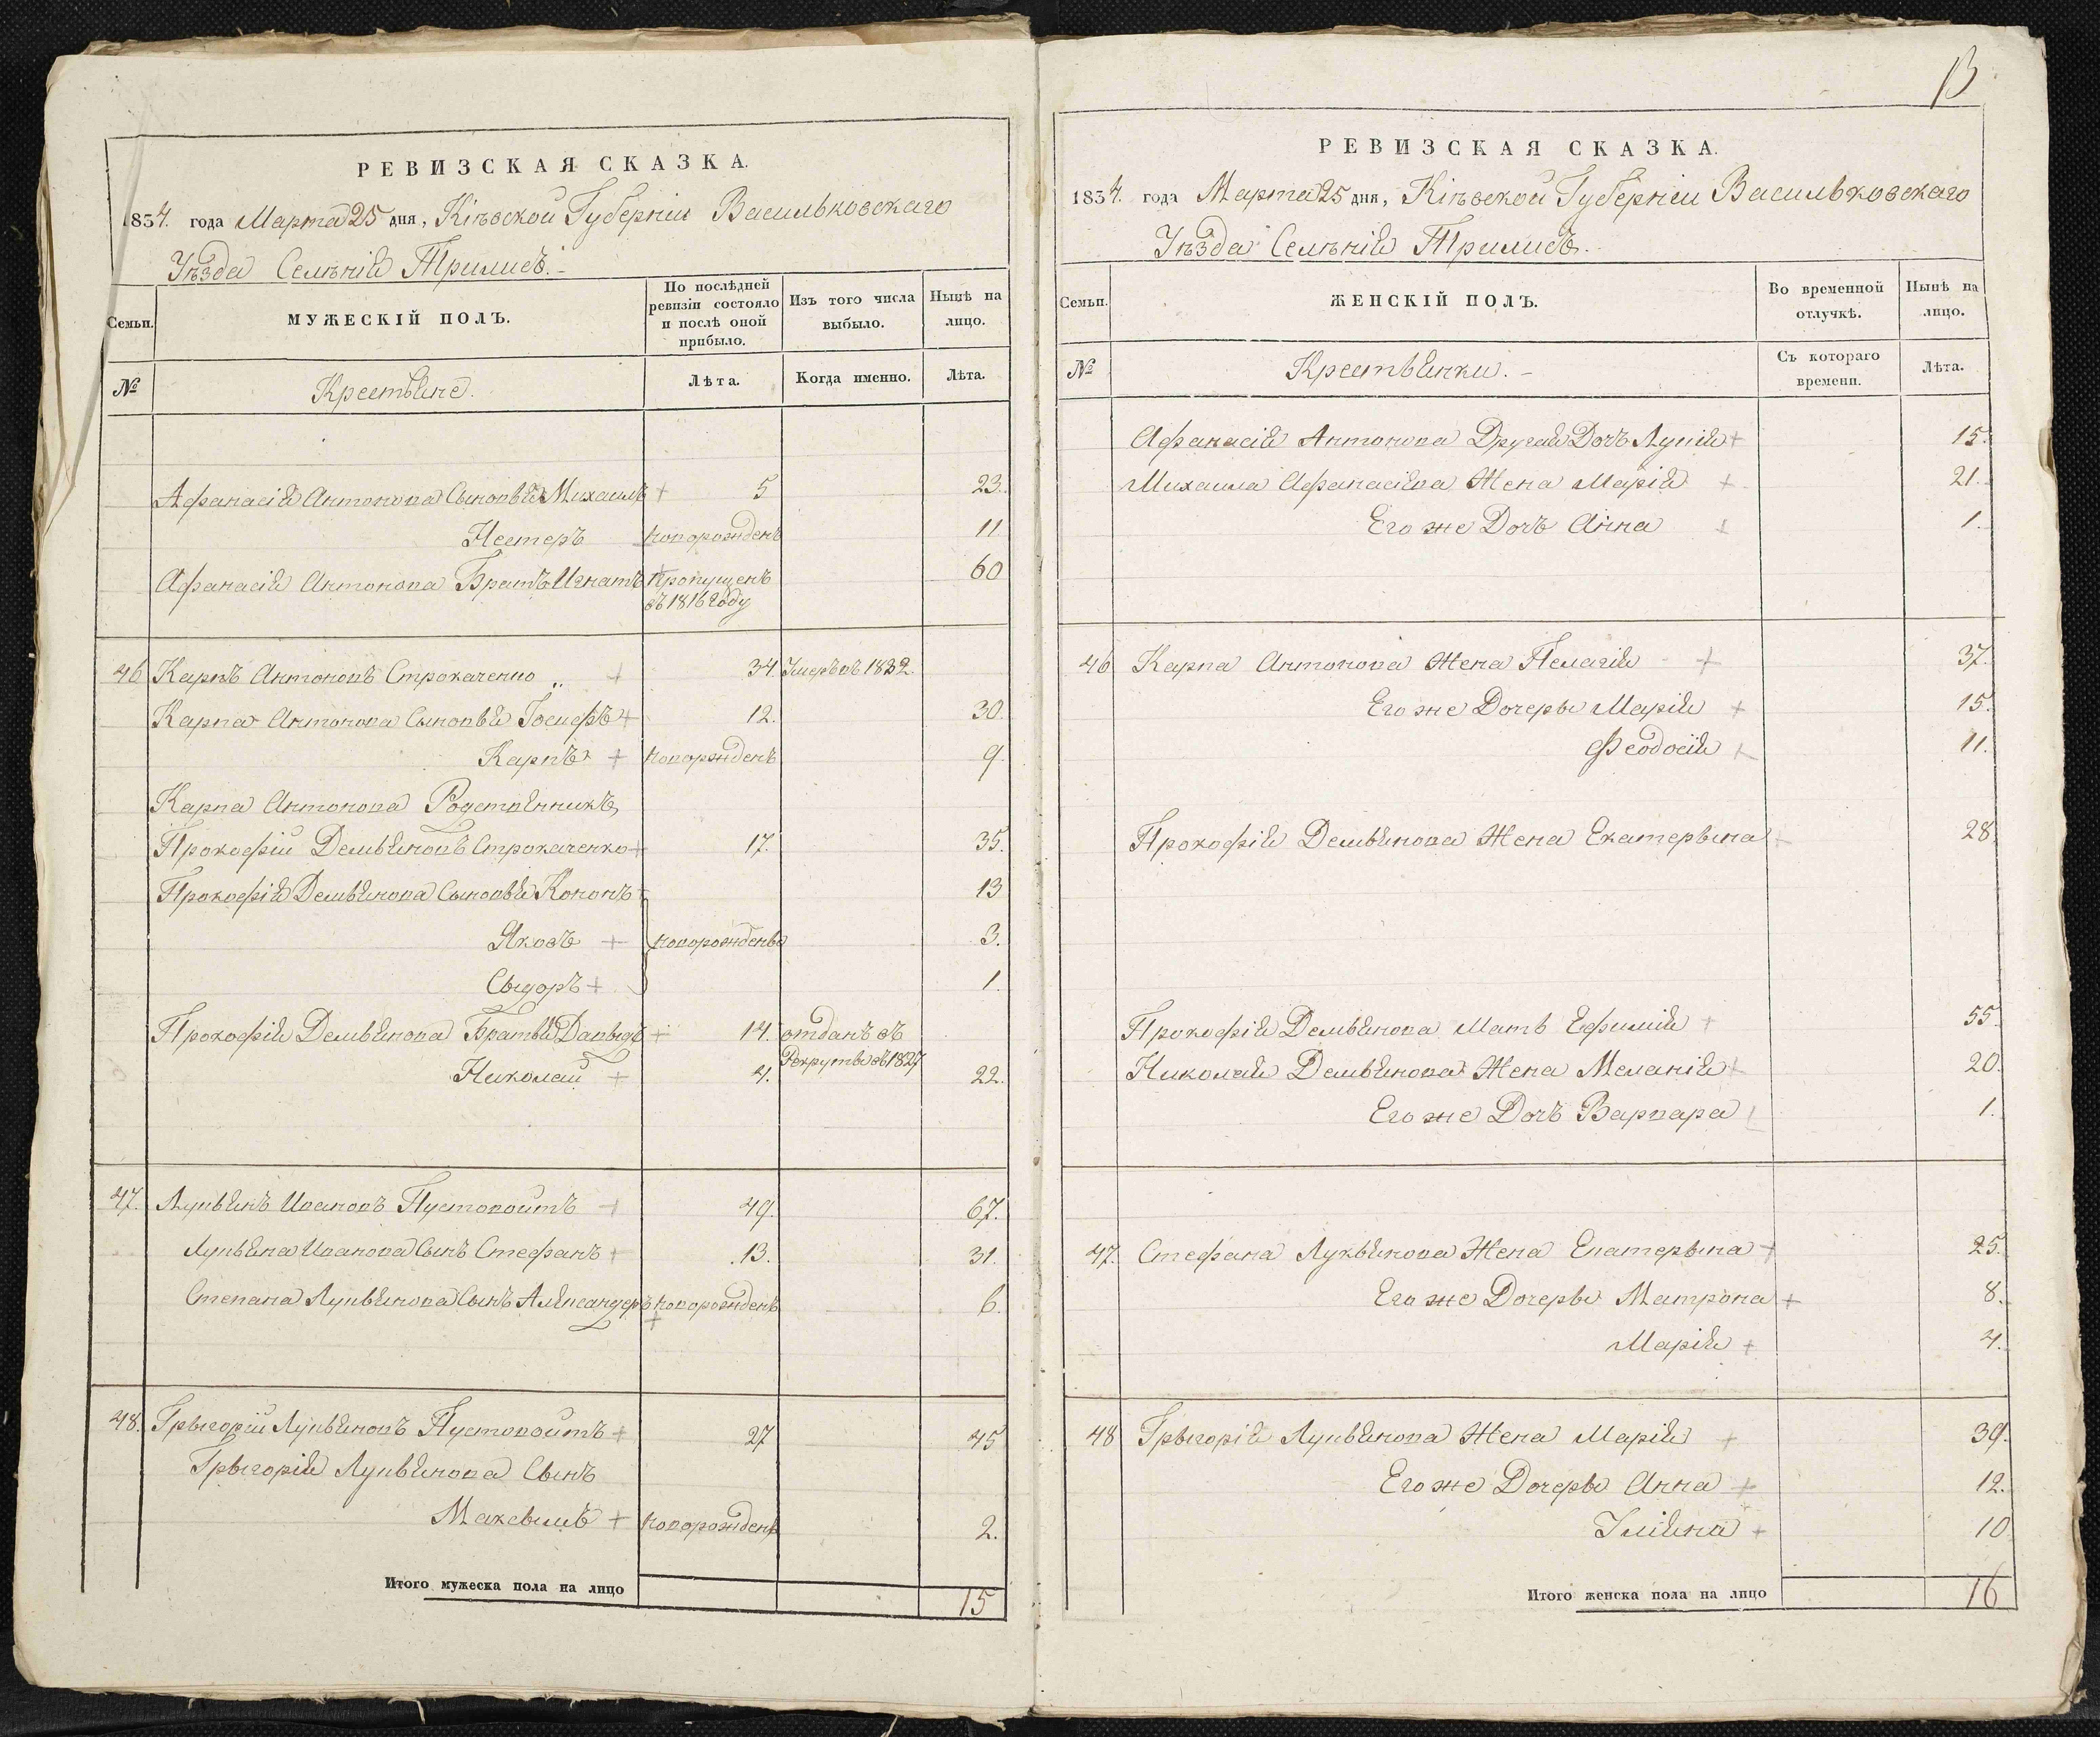 РЕВИЗСКАЯ СКАЗКА.
1834. года Марта 25 дня, Кіевской Губерніи Васильковскаго
Уѣзда Селѣнія Трилисъ.
Семьи.
МУЖЕСКІЙ ПОЛЪ.
По послѣдней ревизіи состояло и послѣ оной прибыло.
Изъ того числа выбыло.
Нынѣ на лицо.
№
Крестьяне.
Лѣта.
Когда именно.
Лѣта.
Афанасія Антонова Сыновья Михаилъ + 5 23.
Нестеръ новорожденъ 11
Афанасія Антонова Братъ Игнатъ пропущенъ 60
въ 1816 году
46 Карпъ Антоновъ Строкаченко + 34. Умеръ въ 1832.
Карпа Антонова Сыновья Іосифъ + 12. 30.
Карпъ + новорожденъ 9.
Карпа Антонова Родственникъ
Прокофій Демьяновъ Строкаченко + 17. 35.
Прокофія Демьянова Сыновья Кононъ + 13
Яковъ + новорожденые 3.
Сыдоръ + 1.
Прокофія Демьянова Братья Давыдъ + 14. отданъ въ
Рекруты въ 1827
Николай + 4. 22.
47. Лукьянъ Ивановъ Пустовойтъ + 49. 67.
Лукьяна Иванова Сынъ Стефанъ + 13. 31.
Степана Лукьянова Сынъ Александеръ новорожденъ 6.
+
48. Грыгорій Лукьяновъ Пустовойтъ + 27 45
Грыгорія Лукьянова Сынъ
Максымъ + новорожденъ 2.
Итого мужеска пола на лицо 15
13
РЕВИЗСКАЯ СКАЗКА.
1834. года Марта 25 дня, Кіевской Губерніи Васильковскаго
Уѣзда Селѣнія Трилисъ.
Семьи.
ЖЕНСКІЙ ПОЛЪ.
Во временной отлучкѣ.
Нынѣ на лицо.
№
Крестьянки.
Съ котораго времени.
Лѣта.
Афанасія Антонова Другая Дочь Лукія + 15.
Михаила Афанасіева Жена Марія + 21.
Его же Дочь Анна + 1.
46 Карпа Антонова Жена Пелагія + 37.
Его же Дочеры Марія + 15.
Феодосія + 11.
Прокофія Демьянова Жена Екатерына + 28
Прокофія Демьянова Мать Ефимія + 55.
Николая Демьянова Жена Меланія + 20.
Его же Дочь Варвара 1.
47. Стефана Лукьянова Жена Екатерына + 25.
Его же Дочеры Матрона + 8.
Марія + 4.
48 Грыгорія Лукьянова Жена Марія + 39.
Его же Дочеры Анна + 12.
Уліяна + 10
Итого женска пола на лицо 16